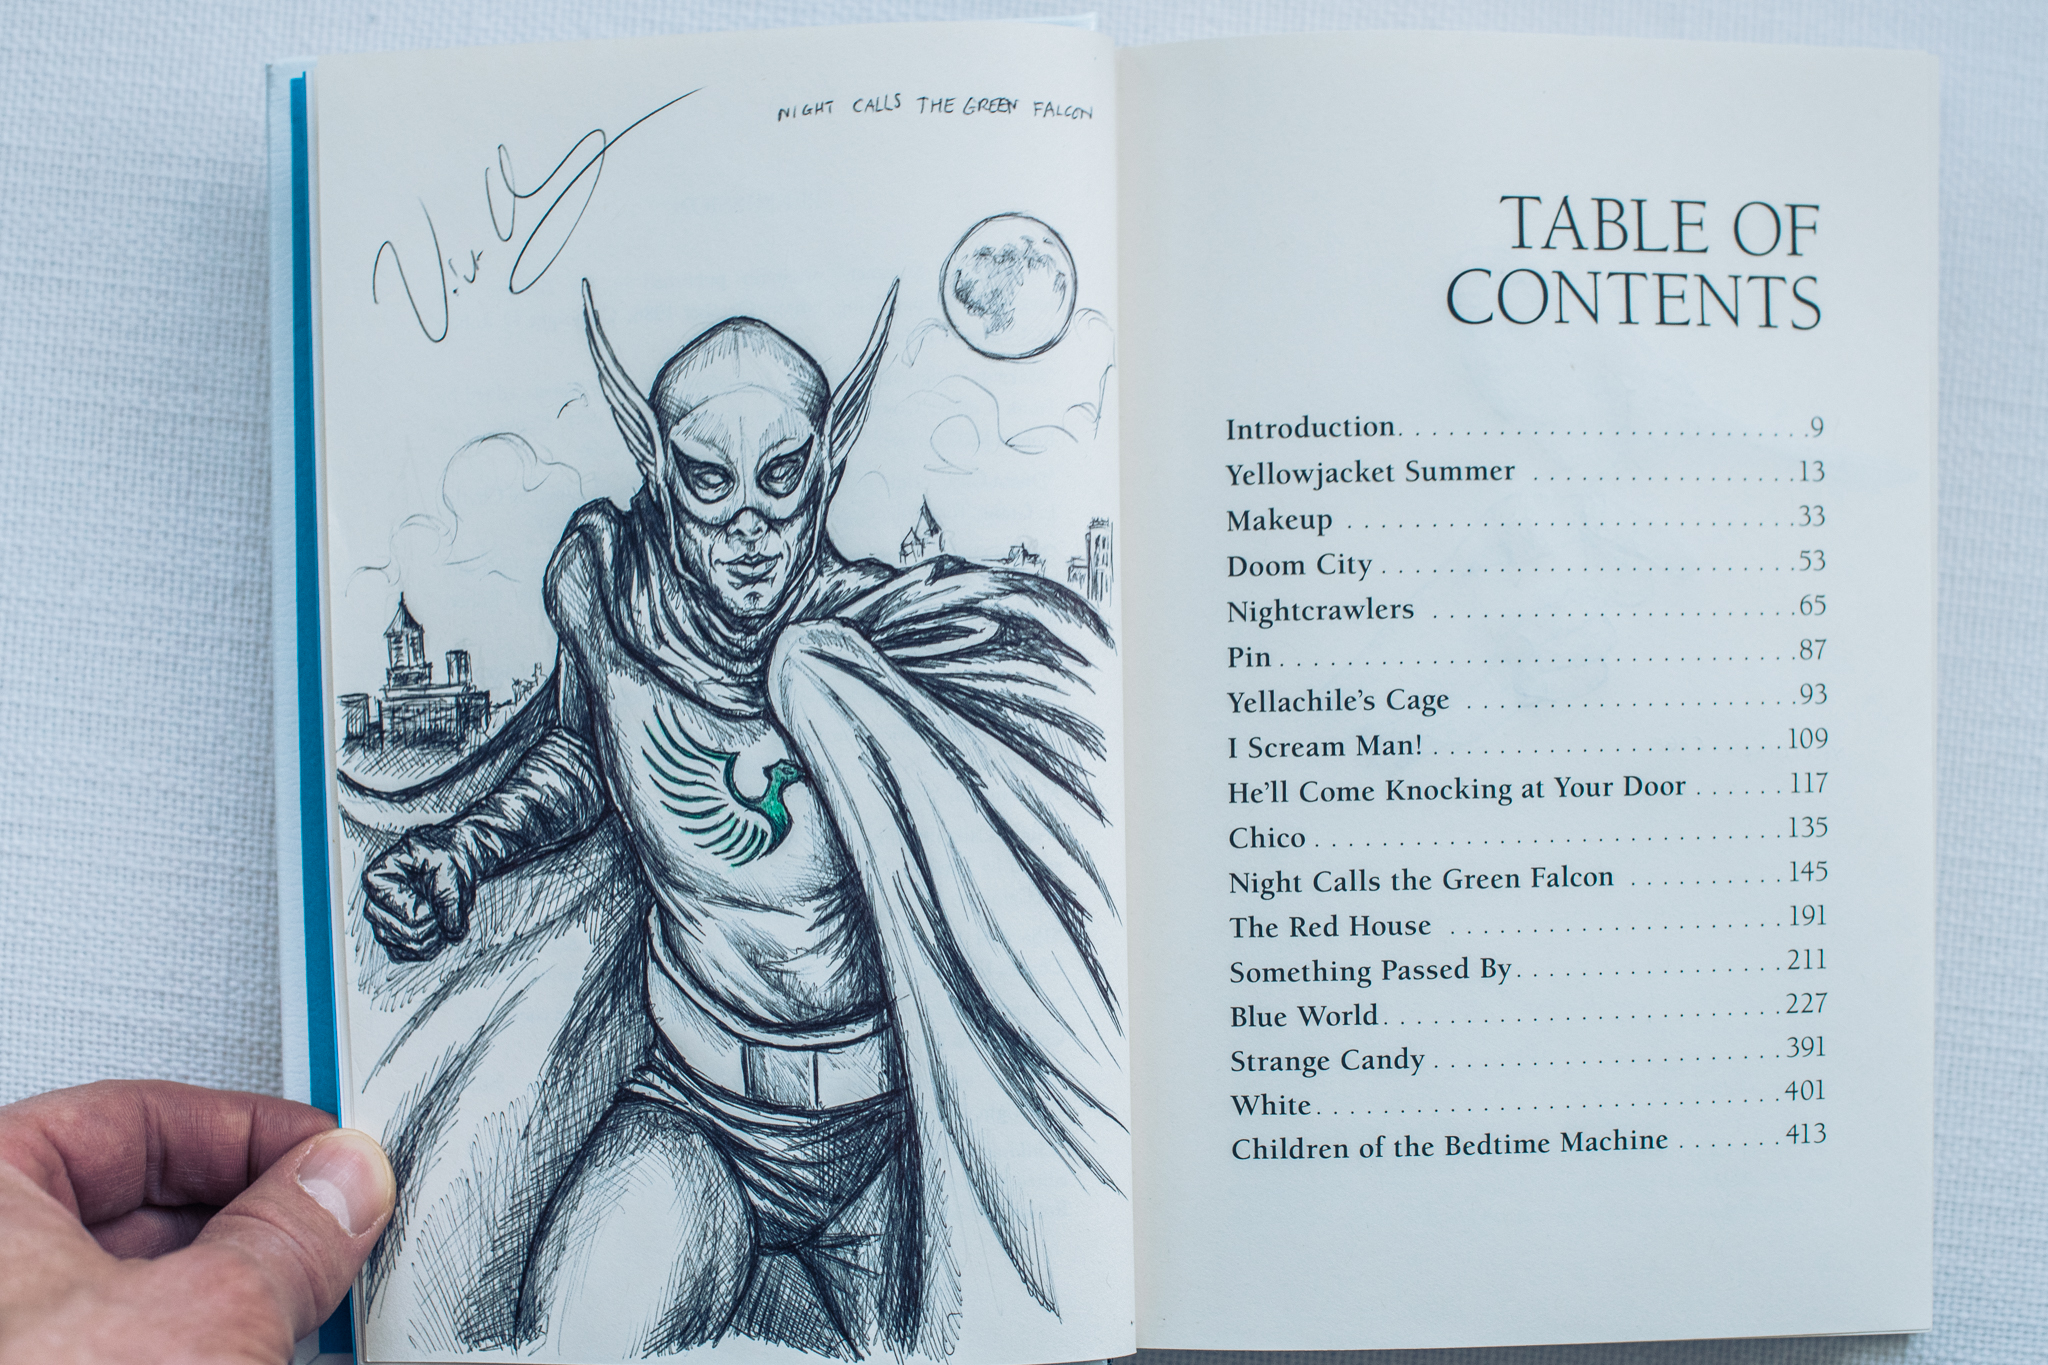 NIGHT CALLS THE GREEN FALCON
TABLE OF
CONTENTS
Introduction. . . . . . . . . . . . . . . . . . . . . . . . . . .9
Yellowjacket Summer . . . . . . . . . . . . . . . . . .13
Makeup . . . . . . . . . . . . . . . . . . . . . . . . . . . . . .33
Doom City . . . . . . . . . . . . . . . . . . . . . . . . . . . .53
Nightcrawlers . . . . . . . . . . . . . . . . . . . . . . . . .65
Pin . . . . . . . . . . . . . . . . . . . . . . . . . . . . . . . . . . .87
Yellachile's Cage . . . . . . . . . . . . . . . . . . . . . . .93
I Scream Man! . . . . . . . . . . . . . . . . . . . . . . . .109
He'll Come Knocking at Your Door . . . . . . 117
Chico . . . . . . . . . . . . . . . . . . . . . . . . . . . . . . . .135
Night Calls the Green Falcon . . . . . . . . . . 145
The Red House . . . . . . . . . . . . . . . . . . . . . . . .191
Something Passed By. . . . . . . . . . . . . . . . . . .211
Blue World. . . . . . . . . . . . . . . . . . . . . . . . . . . .227
Strange Candy . . . . . . . . . . . . . . . . . . . . . . . . .391
White. . . . . . . . . . . . . . . . . . . . . . . . . . . . . . . .401
Children of the Bedtime Machine . . . . . . .413